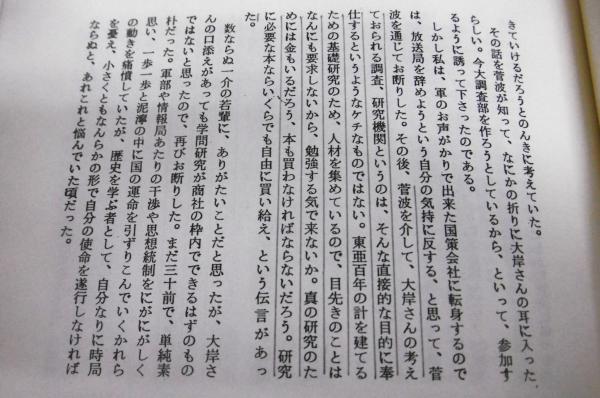 きていけるだろうとのんきに考えていた。
その話を菅波が知って、なにかの折りに大岸さんの耳に入った
らしい。今大調査部を作ろうとしているから、といって、参加す
るように誘って下さったのである。
しかし私は、軍のお声がかりで出来た国策会社に転身するので
は、放送局を辞めようという自分の気持に反する、と思って、菅
波を通じてお断りした。その後、菅波を介して、大岸さんの考え
ておられる調査、研究機関というのは、そんな直接的な目的に奉
仕するというようなケチなものではない。東亜百年の計を建てる
ための基礎研究のため、人材を集めているので、目先きのことは
なんにも要求しないから、勉強する気で来ないか。真の研究のた
めには金もいるだろう、本も買わなければならないだろう。研究
に必要な本ならいくらでも自由に買い給え、という伝言があっ
た。
数ならぬ一介の若輩に、ありがたいことだと思ったが、大岸さ
んの口添えがあっても学問研究が商社の枠内でできるはずのもの
ではないと思ったので、再びお断りした。まだ三十前で、単純素
朴だった。軍部や情報局あたりの干渉や思想統制をにがにがしく
思い、一歩一歩と泥濘の中に国の運命を引ずりこんでいくかれら
の動きを痛憤していたが、歴史を学ぶ者として、自分なりに時局
を憂え、小さくともなんらかの形で自分の使命を遂行しなければ
ならぬと、あれこれと悩んでいた頃だった。